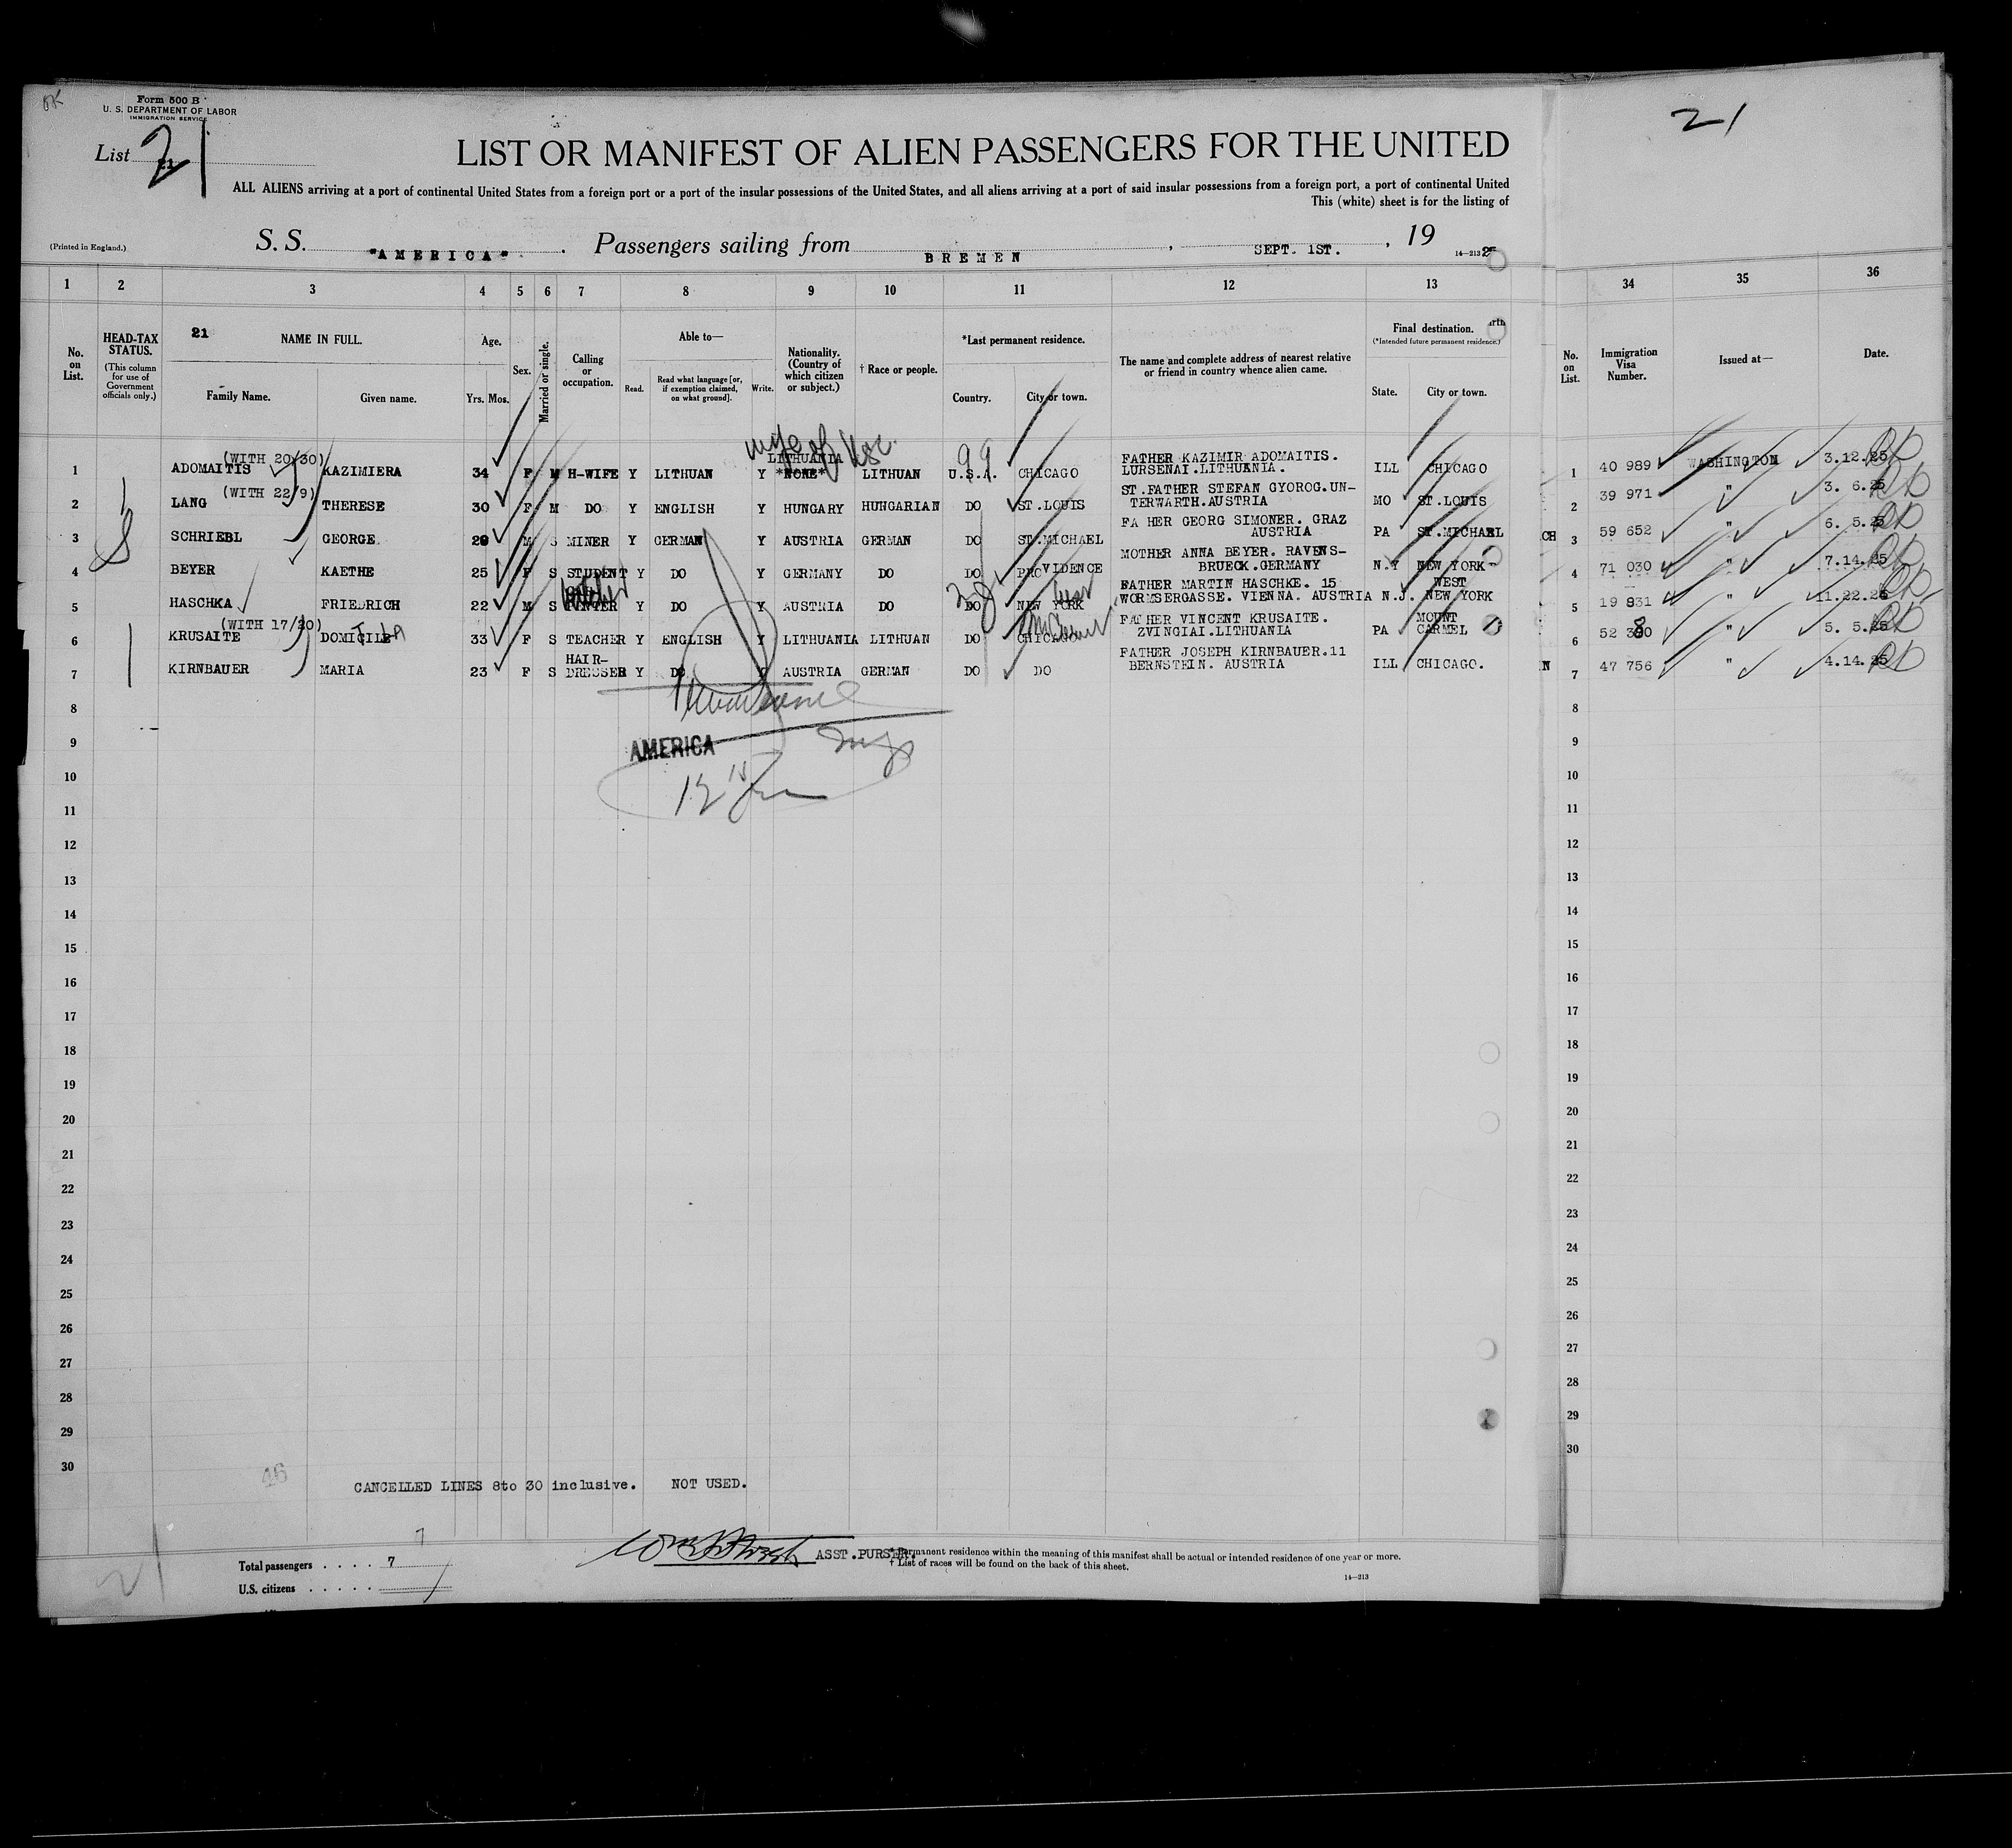 Form 500 B
U. S. DEPARTMENT OF LABOR
IMMIGRATION SERVICE
21
List 21
LIST OR MANIFEST OF ALIEN PASSENGERS FOR THE UNITED
ALL ALIENS arriving at a port of continental United States from a foreign port or a port of the insular possessions of the United States, and all aliens arriving at a port of said insular possessions from a foreign port, a port of continental United
This (white) sheet is for the listing of
(Printed in England.) S. S. "AMERICA" Passengers sailing from BREMEN, SEPT. 1ST., 19
14-213
1 2 3 4 5 6 7 8 9 10 11 12 13 34 35 36
No. on List.
HEAD-TAX STATUS.
(This column for use of Government officials only.)
21 NAME IN FULL.
Family Name. Given name.
Age.
Yrs. Mos.
Sex.
Married or single.
Calling or occupation.
Able to—
Read. Read what language [or, if exemption claimed, on what ground]. Write.
Nationality. (Country of which citizen or subject.)
† Race or people.
*Last permanent residence.
Country. City or town.
The name and complete address of nearest relative or friend in country whence alien came.
Final destination.
(*Intended future permanent residence.)
State. City or town.
No. on List.
Immigration Visa Number.
Issued at—
Date.
wife of USC.
(WITH 20/30) LITHUANIA 99 FATHER KAZIMIR ADOMAITIS.
1 ADOMAITIS KAZIMIERA 34 F M H-WIFE Y LITHUAN Y *NONE* LITHUAN U.S.A. CHICAGO LURSENAI.LITHUANIA. ILL CHICAGO 1 40 989 WASHINGTON 3.12.25
(WITH 22/9) ST.FATHER STEFAN GYOROG.UN-
2 LANG THERESE 30 F M DO Y ENGLISH Y HUNGARY HUNGARIAN DO ST.LOUIS TERWARTH.AUSTRIA MO ST.LOUIS 2 39 971 " 3. 6.25
FA HER GEORG SIMONER. GRAZ
3 SCHRIEBL GEORGE M S MINER Y GERMAN Y AUSTRIA GERMAN DO ST.MICHAEL AUSTRIA PA ST.MICHAEL CH 3 59 652 " 6. 5.25
MOTHER ANNA BEYER. RAVENS-
4 BEYER KAETHE 25 F S STUDENT Y DO Y GERMANY DO DO PROVIDENCE BRUECK.GERMANY N.Y NEW YORK 4 71 030 " 7.14.25
FATHER MARTIN HASCHKE. 15 WEST
5 HASCHKA FRIEDRICH 22 M S Y DO Y AUSTRIA DO DO NEW YORK WORMSERGASSE. VIENNA. AUSTRIA N.J. NEW YORK 5 19 831 " 11.22.25
(WITH 17/20) FATHER VINCENT KRUSAITE. MOUNT
6 KRUSAITE DOMICILE 33 F S TEACHER Y ENGLISH Y LITHUANIA LITHUAN DO CHICAGO ZVINGIAI.LITHUANIA PA CARMEL 6 52 " 5. 5.25
HAIR- FATHER JOSEPH KIRNBAUER.11
7 KIRNBAUER MARIA 23 F S DRESSER Y DO Y AUSTRIA GERMAN DO DO BERNSTEIN. AUSTRIA ILL CHICAGO. N 7 47 756 " 4.14.25
8 8
AMERICA
9 9
10 10
11 11
12 12
13 13
14 14
15 15
16 16
17 17
18 18
19 19
20 20
21 21
22 22
23 23
24 24
25 25
26 26
27 27
28 28
29 29
30 30
46
CANCELLED LINES 8to 30 inclusive. NOT USED.
ASST.PURSER.
Total passengers . . . . 7
U.S. citizens . . . . .
* Permanent residence within the meaning of this manifest shall be actual or intended residence of one year or more.
† List of races will be found on the back of this sheet.
14-213
21